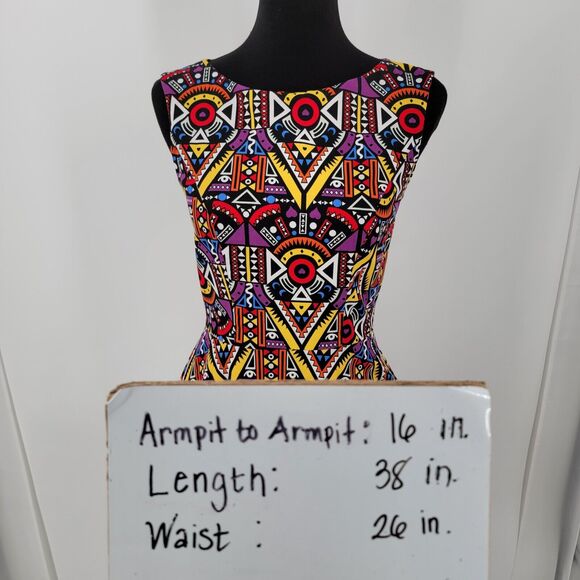 Armpit to Armpit: 16 in.
Length: 38 in.
Waist : 26 in.